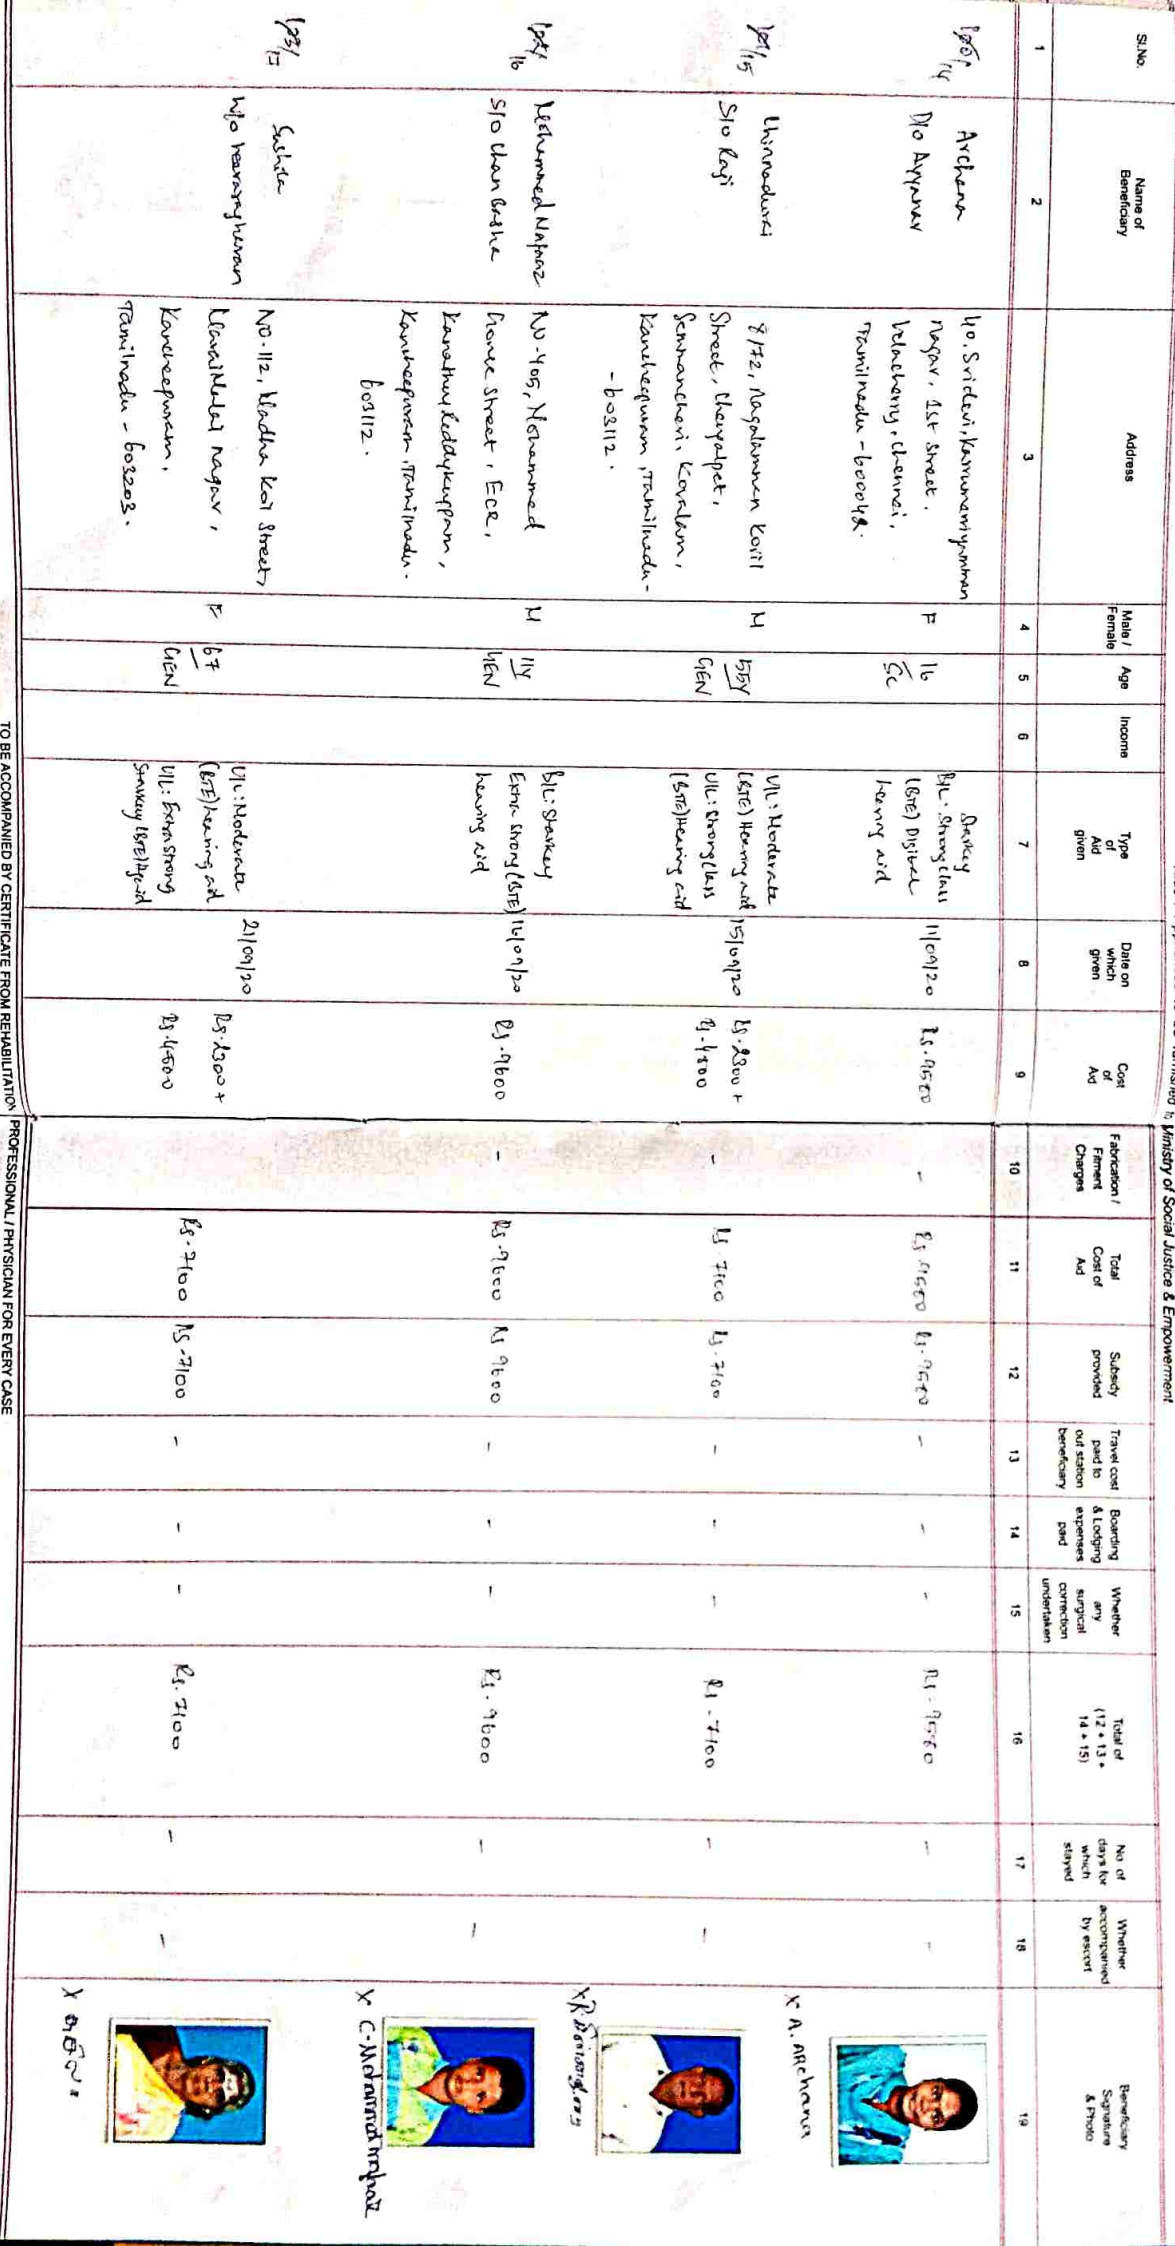 Ministry of Social Justice & Empowerment
Sl.No.
Name of
Beneficiary
Address
Male /
Female
Age
Income
Type
of
Aid
given
Date on
which
given
Cost
of
Aid
Fabrication /
Fitment
Charges
Total
Cost of
Aid
Subsidy
provided
Travel cost
paid to
out station
beneficiary
Boarding
& Lodging
expenses
paid
Whether
any
surgical
correction
undertaken
Total of
(12 + 13 +
14 + 15)
No. of
days for
which
stayed
Whether
accompanied
by escort
Beneficiary
Signature
& Photo
1 2 3 4 5 6 7 8 9 10 11 12 13 14 15 16 17 18 19
14
Archana
D/o Ayyanar
40. Sridevi, Karumariyamman
nagar, 1st Street,
Velachery, Chennai,
Tamilnadu - 600042.
F
16
SC
Starkey
B/L: Strong class
(BTE) Digital
hearing aid
11/09/20
Rs.9500
-
Rs.9500
Rs.9500
-
-
-
Rs.9500
-
-
X A. Archana
15
Chinnadurai
S/O Raji
8/72, Nagalamman Kovil
Street, Chengalpet,
Semmancheri, Kovalam,
Kancheepuram, Tamilnadu-
- 603112.
M
55Y
GEN
U/L: Moderate
(BTE) Hearing aid
U/L: Strong class
(BTE) Hearing aid
15/09/20
Rs.2300 +
Rs.4800
-
Rs.7100
Rs.7100
-
-
-
Rs.7100
-
-
16
Mohammed Nafraz
S/O Chan Basha
NO-405, Mohammed
Street, ECR,
Kanathur Reddykuppam,
Kancheepuram, Tamilnadu-
603112.
M
11Y
GEN
B/L: Starkey
Extra Strong (BTE)
hearing aid
16/09/20
Rs.9600
-
Rs.9600
Rs 9600
-
-
-
Rs.9600
-
-
17
Sushila
W/o Veeraraghavan
NO-112, Madha Koil Street,
Maraimalai nagar,
Kancheepuram,
Tamilnadu - 603203.
F
67
GEN
U/L: Moderate
(BTE) hearing aid
U/L: Extra Strong
Starkey (BTE) H/aid
21/09/20
Rs.2300 +
Rs.4800
Rs.7100
Rs.7100
-
-
-
Rs.7100
-
-
TO BE ACCOMPANIED BY CERTIFICATE FROM REHABILITATION PROFESSIONAL / PHYSICIAN FOR EVERY CASE